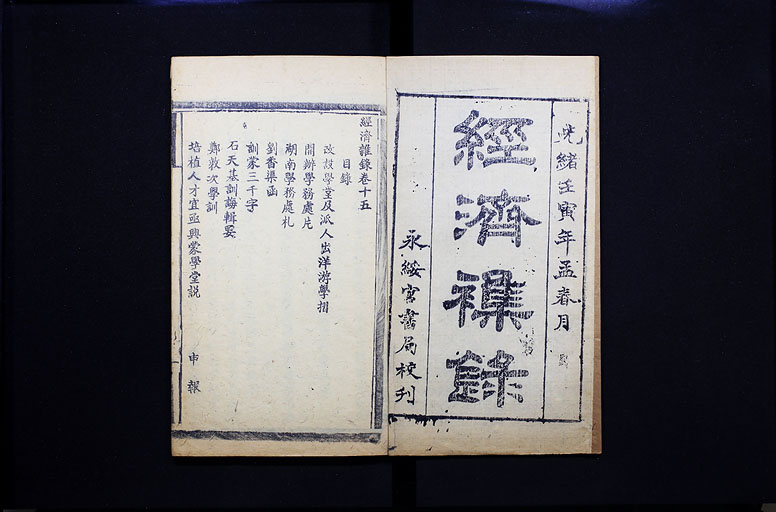 光緒壬寅年孟春月
經濟襍錄
永綏官書局校刋
經濟雜錄卷十五
目錄
改設學堂及派人出洋游學摺
開辦學務處片
湖南學務處札
劉香渠函
訓蒙三千字
石天基訓誨輯要
鄭敦次學訓
培植人才宜亟興蒙學堂説 申報